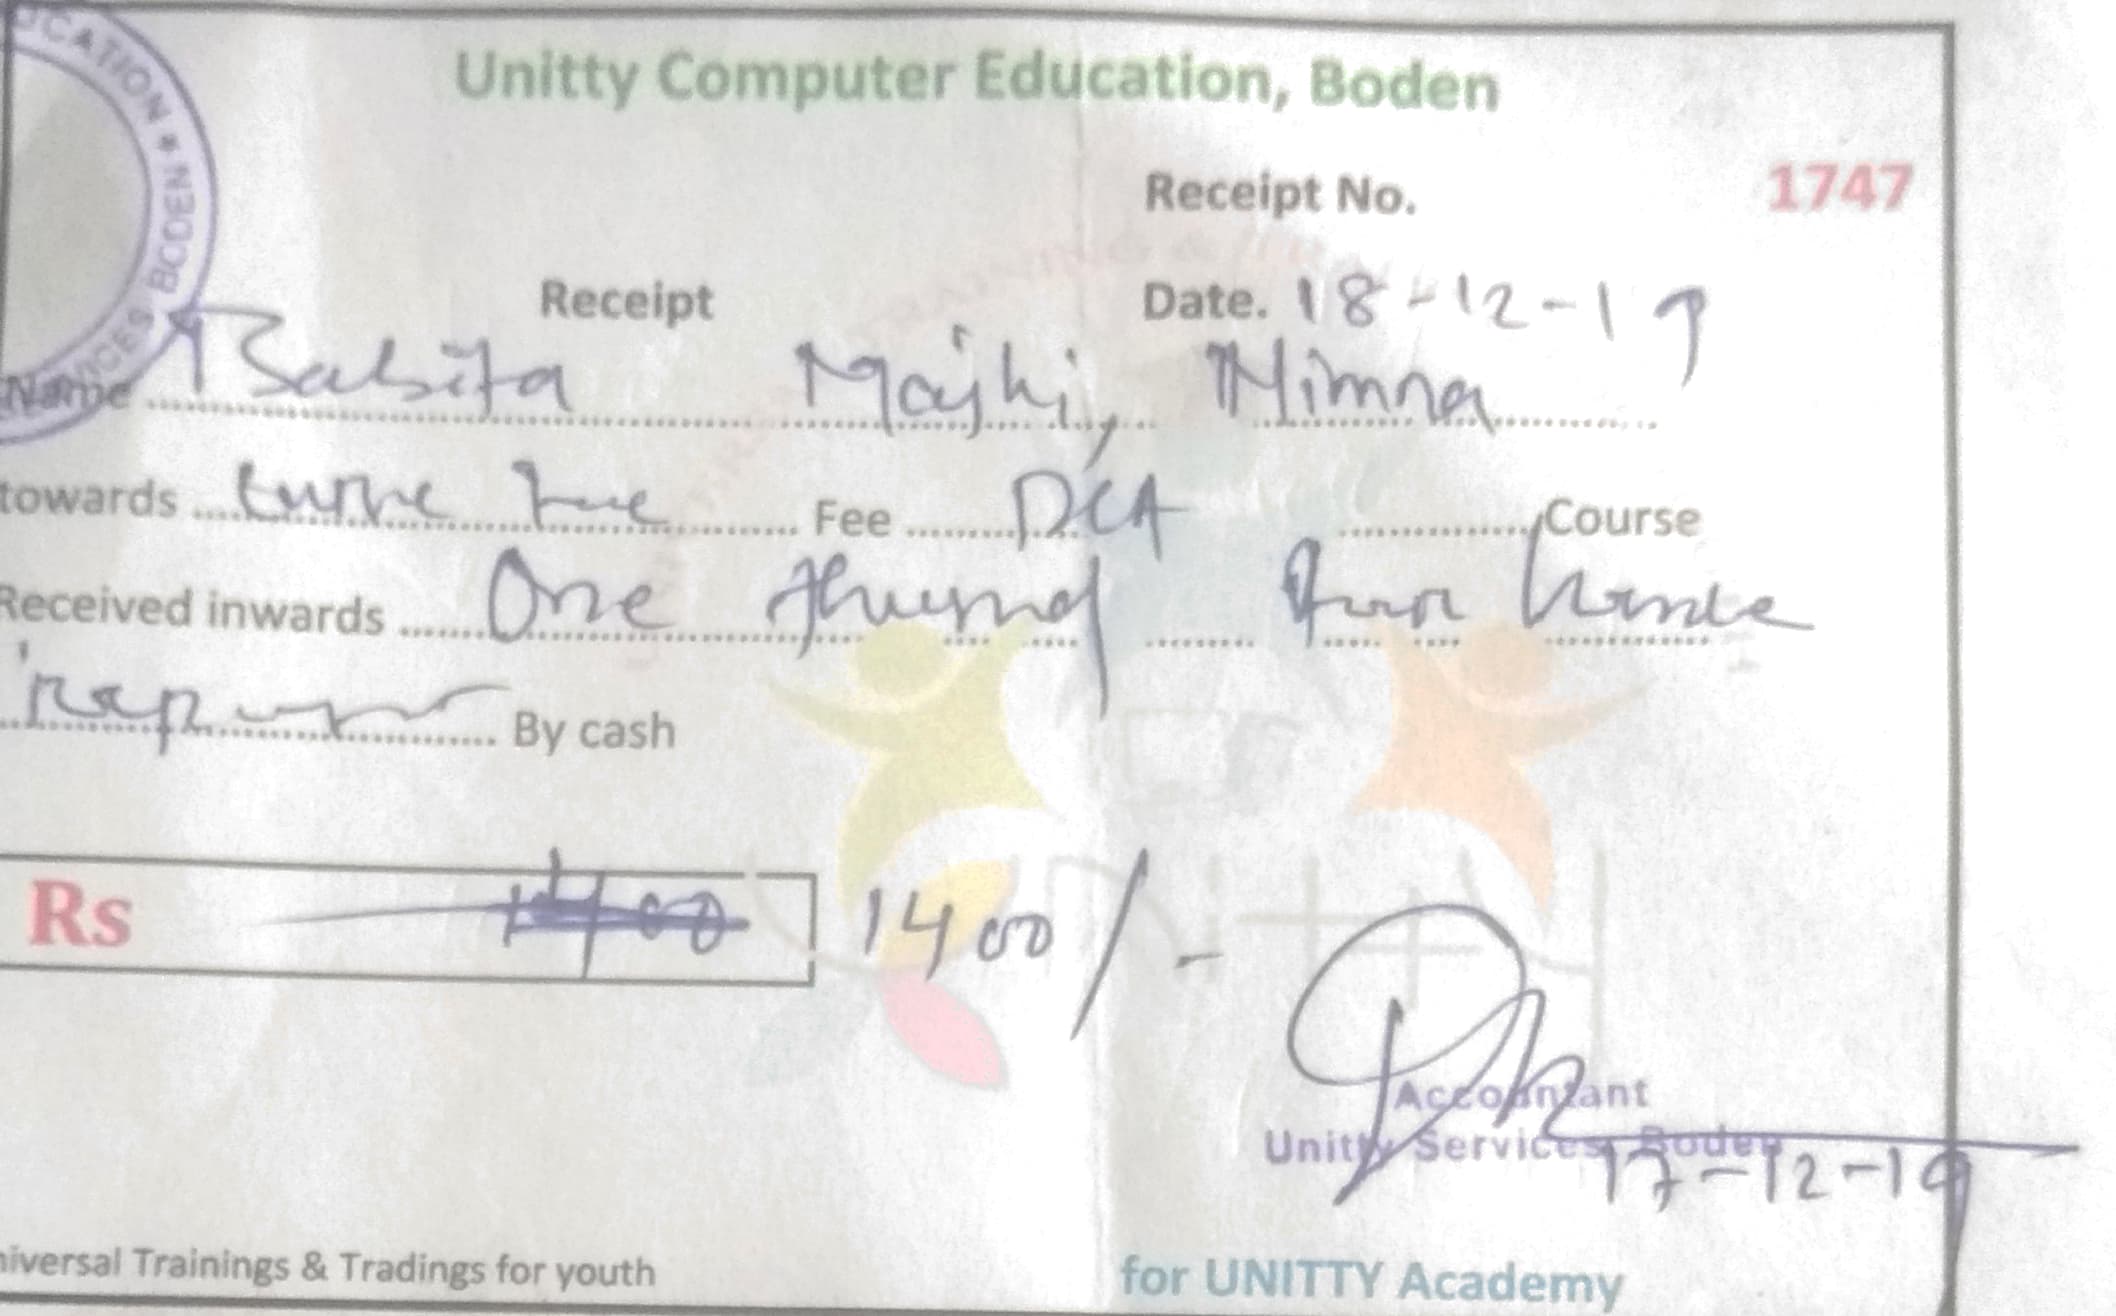 Unitty Computer Education, Boden
UCATION * BODEN
VICES
Receipt No. 1747
Receipt Date. 18-12-19
Name Babita Majhi, Nimna
towards Fee DCA Course
Received inwards One
By cash
Rs 1400 1400/-
Accountant
Unitty Services, Boden
17-12-19
niversal Trainings & Tradings for youth for UNITTY Academy